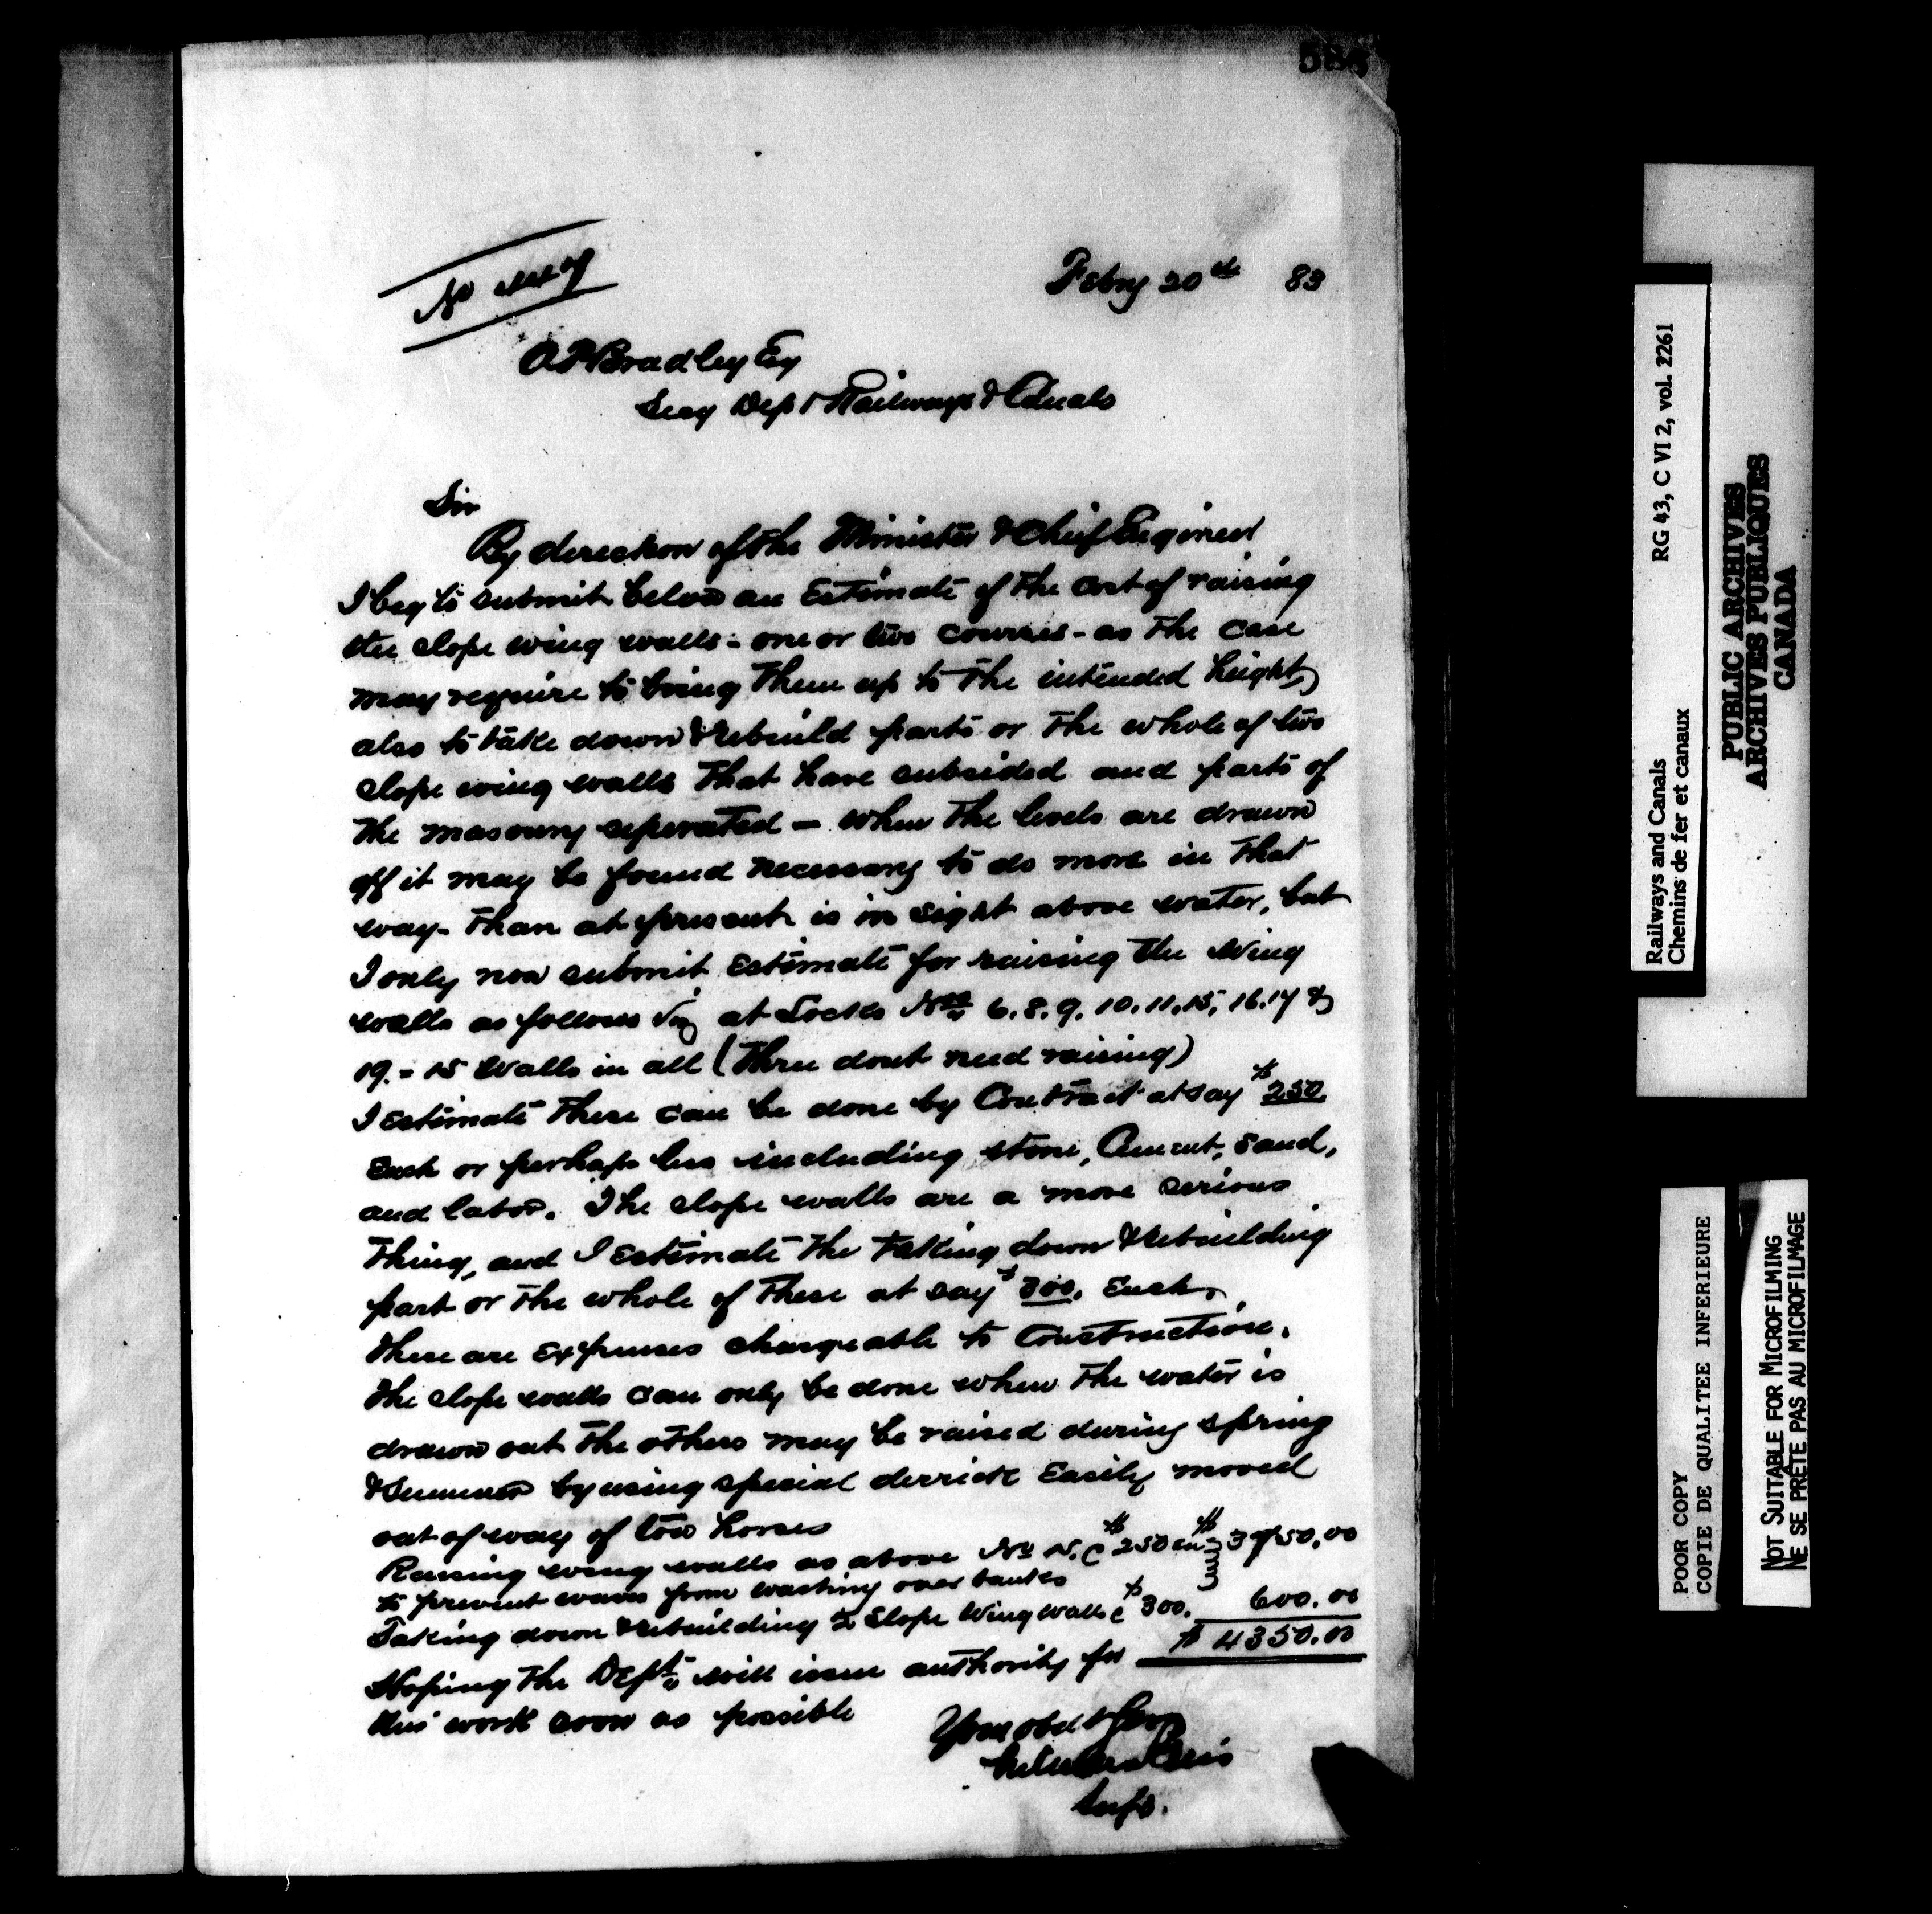 No
Febry 20th 83
A P Bradley Esq
Secy Dept Railways & Canals
Sir
By direction of the Minister & Chief Engineer
I beg to submit below an Estimate of the cost of raising
the slope wing walls - one or two courses - as the case
may require to bring them up to the intended height,
also to take down & rebuild parts or the whole of two
slope wing walls that have subsided and parts of
the masonry seperated - when the levels are drawn
off it may be found necessary to do more in that
way - than at present is in sight above water, but
I only now submit Estimate for raising the wing
walls as follows viz at Locks Nos 6. 8. 9. 10. 11. 15. 16. 17 &
19. - 15 Walls in all (Three dont need raising)
I Estimate these can be done by Contract at say $250
Each or perhaps less including stone, Cement, sand,
and labor. The slope walls are a more serious
Thing, and I Estimate the taking down & rebuilding
part or the whole of these at say $300. Each.
These are Expenses chargeable to Construction.
The slope walls can only be done when the water is
drawn out the others may be raised during spring
& Summer by using special derrick Easily moved
out of way of tow horses
Raising wing walls as above No 15. @ $250 ea $3750.00
to prevent waves from washing over banks
Taking down & rebuilding 2 Slope Wing Walls @ $300. 600.00
$4350.00
Hoping the Dept. will issue authority for
this work soon as possible
Your obedt Serv
Supt.
Railways and Canals RG 43, C VI 2, vol. 2261
Chemins de fer et canaux
PUBLIC ARCHIVES
ARCHIVES PUBLIQUES
CANADA
POOR COPY
COPIE DE QUALITEE INFERIEURE
NOT SUITABLE FOR MICROFILMING
NE SE PRÊTE PAS AU MICROFILMAGE